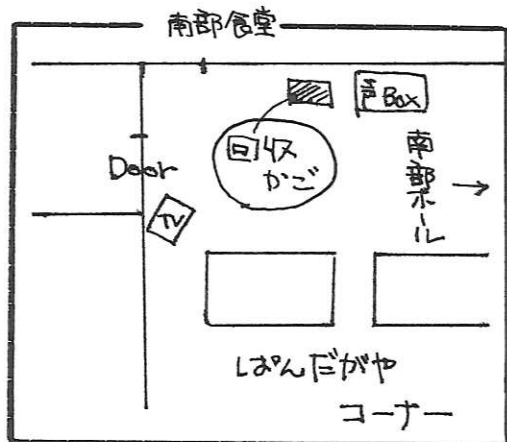 南部食堂
声Box
回収
かご
Door
南部ホール →
ぱんだがや
コーナー